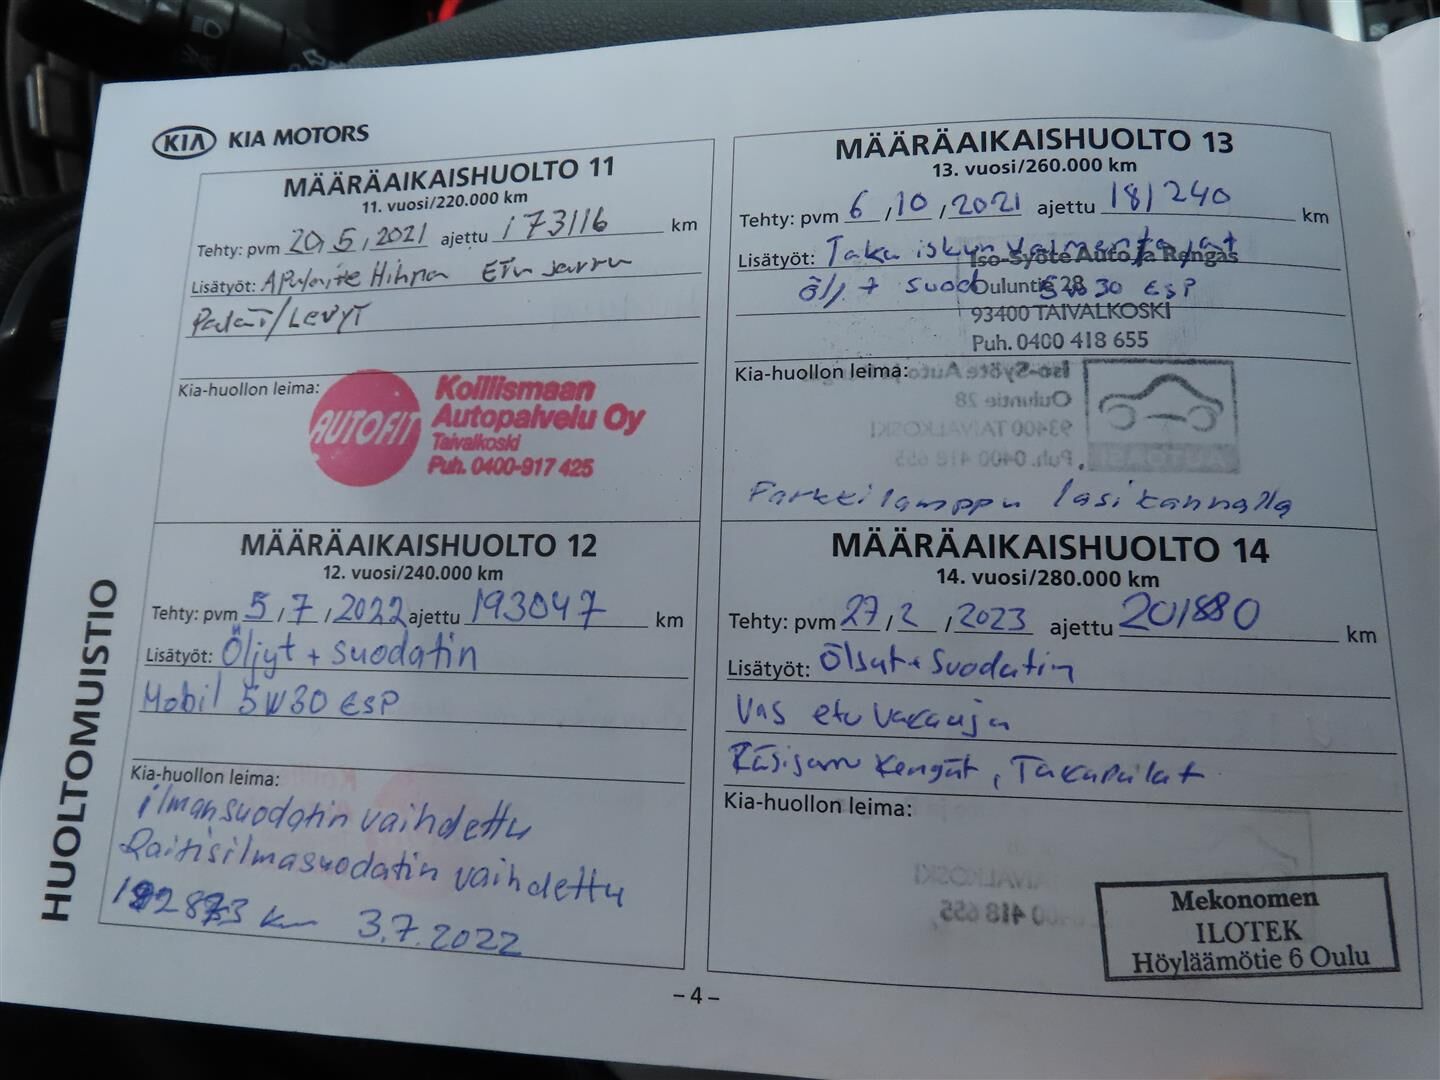 KIA KIA MOTORS
HUOLTOMUISTIO
MÄÄRÄAIKAISHUOLTO 11
11. vuosi/220.000 km
Tehty: pvm 20, 5, 2021 ajettu 173116 km
Lisätyöt: Apulaite Hihna Etu Jarru
Palat/LEVYT
Kia-huollon leima:
AUTOFIT
Koillismaan
Autopalvelu Oy
Taivalkoski
Puh. 0400-917 425
MÄÄRÄAIKAISHUOLTO 12
12. vuosi/240.000 km
Tehty: pvm 5 / 7 / 2022 ajettu 193047 km
Lisätyöt: Öljyt + suodatin
Mobil 5W30 ESP
Kia-huollon leima:
ilmansuodatin vaihdettu
Raitisilmasuodatin vaihdettu
km 3.7.2022
MÄÄRÄAIKAISHUOLTO 13
13. vuosi/260.000 km
Tehty: pvm 6 / 10 / 2021 ajettu 181240 km
Lisätyöt: Taka iskun
Iso-Syöte Auto ja Rengas
öljy + suod 5w30 ESP
Ouluntie 28
93400 TAIVALKOSKI
Puh. 0400 418 655
Kia-huollon leima:
Iso-Syöte Auto ja Rengas
Ouluntie 28
93400 TAIVALKOSKI
Puh. 0400 418 655
AUTOASI
Parkkilamppu lasikannalla
MÄÄRÄAIKAISHUOLTO 14
14. vuosi/280.000 km
Tehty: pvm 27 / 2 / 2023 ajettu 201880 km
Lisätyöt: Öljyt + Suodatin
Vas etu vakauja
Käsijarru Kengät, Takapalat
Kia-huollon leima:
Mekonomen
ILOTEK
Höyläämötie 6 Oulu
– 4 –